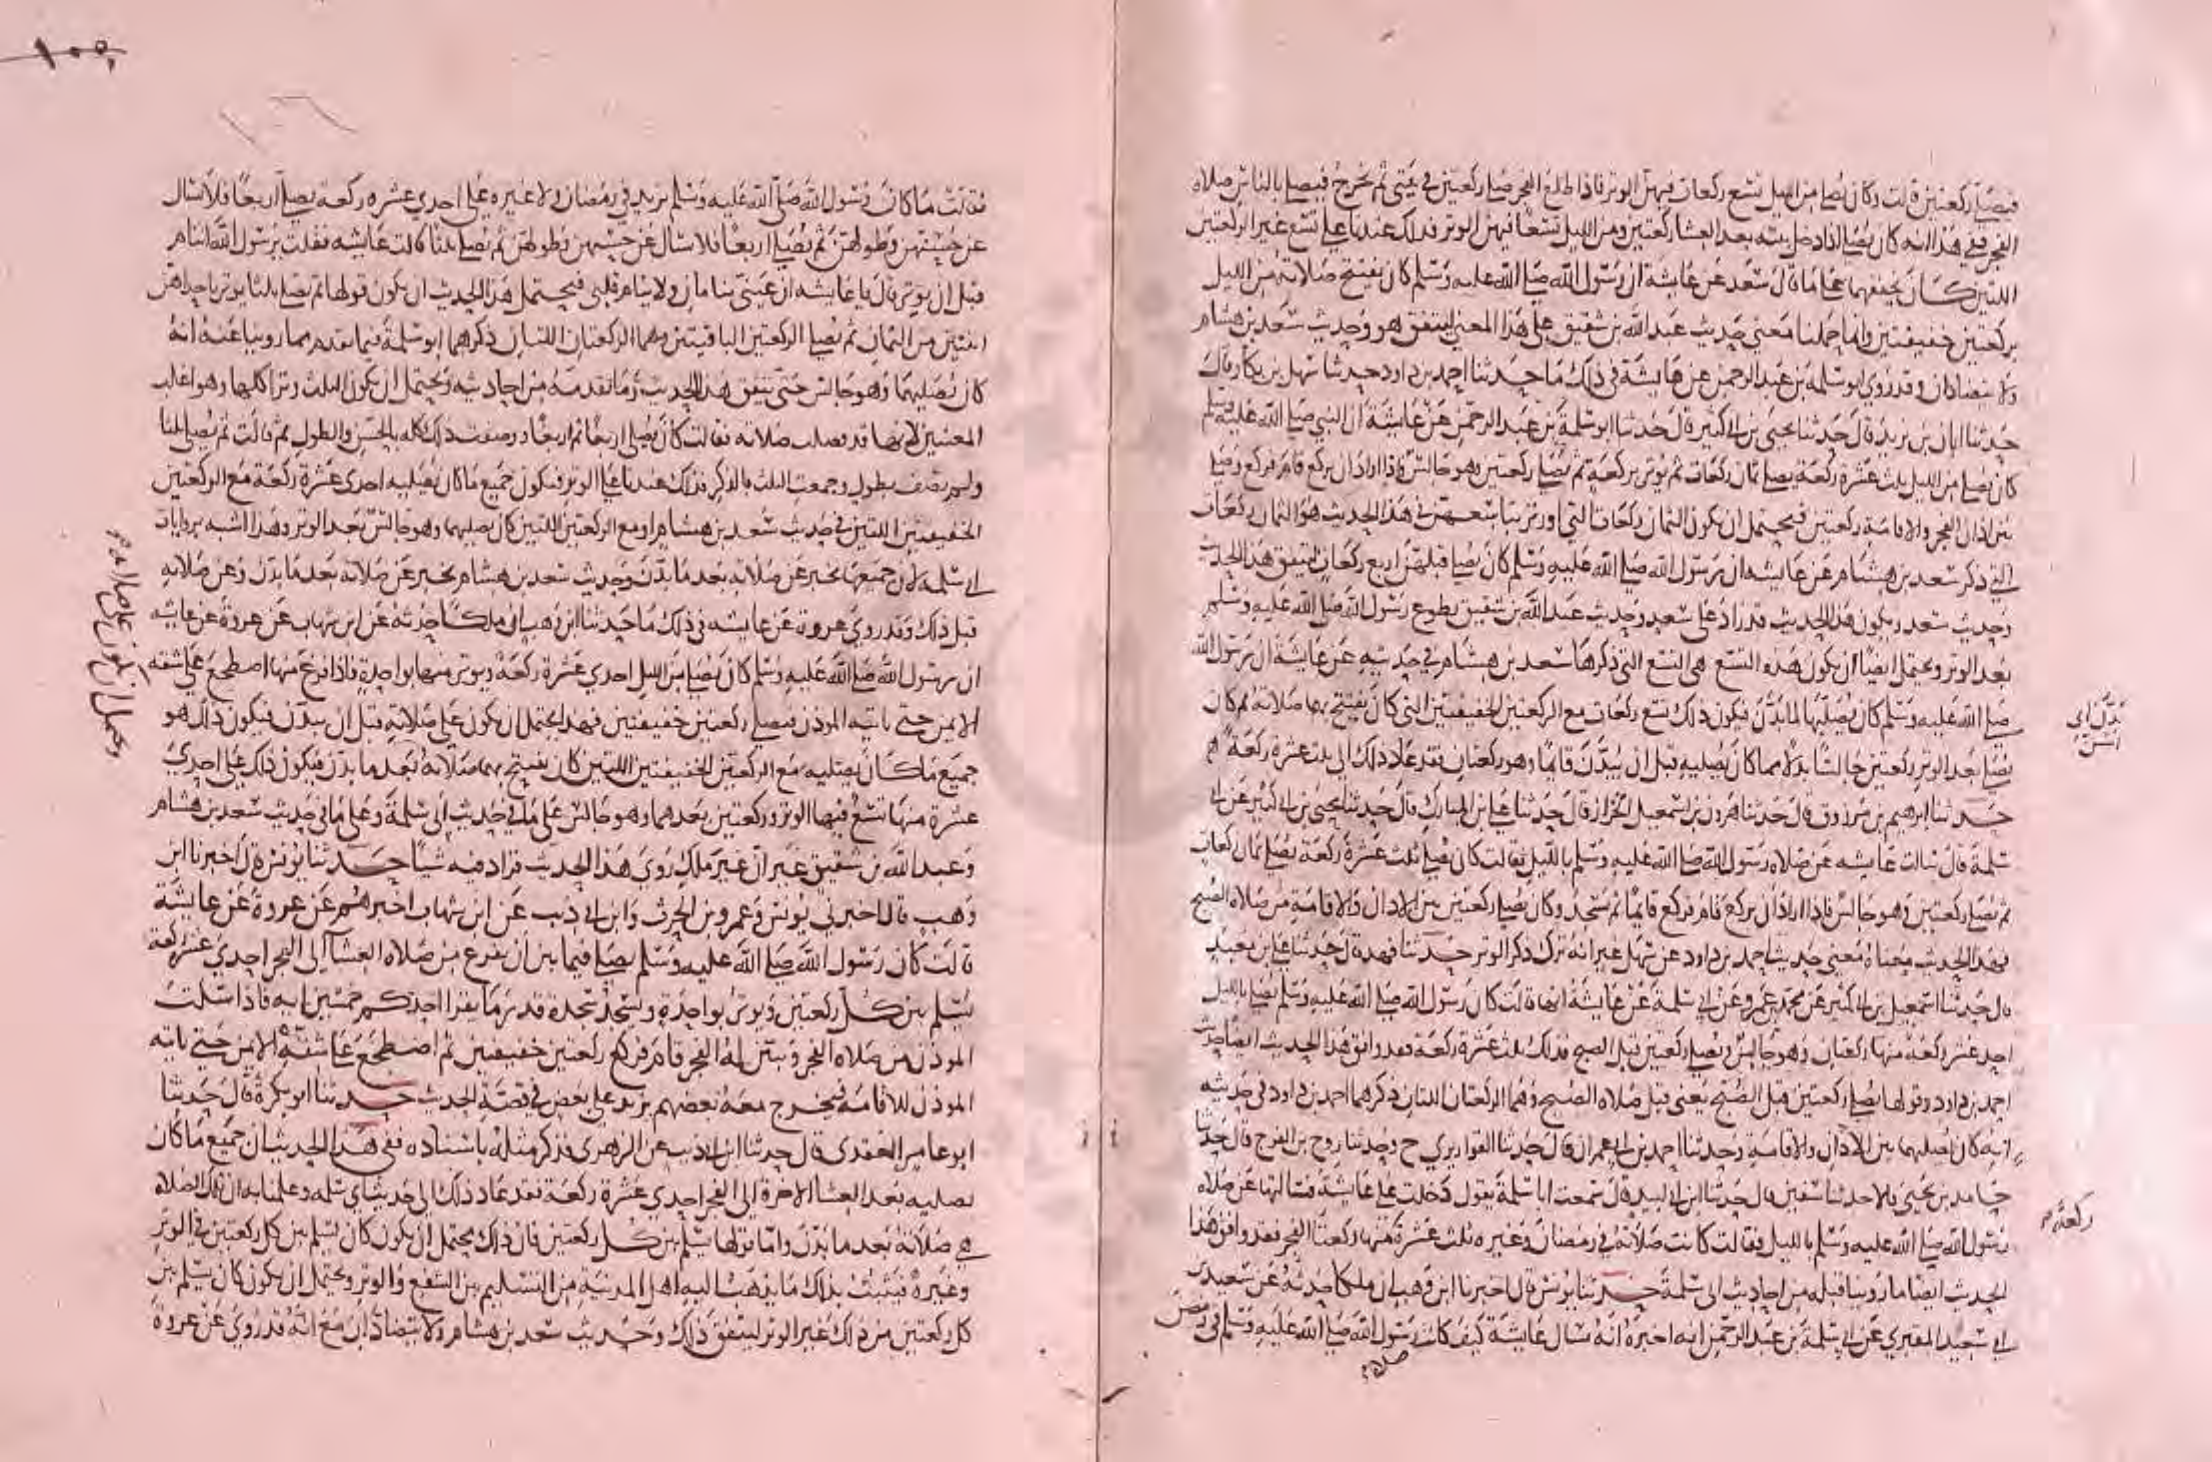 فيصلي ركعتين قالت وكان يصلي من الليل تسع ركعات فيهن الوتر فاذا طلع الفجر صلى ركعتين في بيتي ثم يخرج فيصلي بالناس صلاة
الفجر ففي هذا انه كان يصلي اذا دخل بيته بعد العشا ركعتين ومن الليل تسعا فيهن الوتر فذلك عندنا على تسع غير الركعتين
اللتين كان يخففهما على ما قال سعد عن عايشة ان رسول الله صلى الله عليه وسلم كان يفتتح صلاته من الليل
بركعتين خفيفتين وانما حملنا معنى حديث عبد الله بن شقيق على هذا المعنى ليتفق هو وحديث سعد بن هشام
ولا يتضادان وقد روى ابو سلمة بن عبد الرحمن عن عايشة في ذلك ما حدثنا احمد بن داود حدثنا سهل بن بكار قال
حدثنا ابان بن يزيد قال حدثنا يحيى بن ابي كثير قال حدثنا ابو سلمة بن عبد الرحمن عن عايشة ان النبي صلى الله عليه وسلم
كان يصلي من الليل ثلث عشرة ركعة يصلي ثمان ركعات ثم يوتر بركعة ثم يصلي ركعتين وهو جالس فاذا اراد ان يركع قام فركع وصلى
بين اذان الفجر والاقامة ركعتين فيحتمل ان يكون الثمان ركعات التي اوتر بتاسعتهن في هذا الحديث هو الثمان ركعات
التي ذكر سعد بن هشام عن عايشه ان رسول الله صلى الله عليه وسلم كان يصلي قبلهن اربع ركعات ليتفق هذا الحديث
وحديث سعد ويكون هذا الحديث قد زاد على سعد وحديث عبد الله بن شقيق تطوع رسول الله صلى الله عليه وسلم
بعد الوتر ويحتمل ايضا ان يكون هذه التسع هي التسع التي ذكرها سعد بن هشام في حديثه عن عايشة ان رسول الله
صلى الله عليه وسلم كان يصليها لما بدن فيكون ذلك تسع ركعات مع الركعتين الخفيفتين التي كان يفتتح بها صلاته ثم كان
يصلي بعد الوتر ركعتين جالسا بدلا مما كان يصليه قبل ان يبدن قائما وهو ركعتان فقد عاد ذلك الى ثلث عشرة ركعة
حدثنا ابراهيم بن مرزوق قال حدثنا هرون بن اسمعيل الخزاز قال حدثنا علي ابن المبارك قال حدثنا يحيى بن ابي كثير عن ابي
سلمة قال سالت عايشه عن صلاه رسول الله صلى الله عليه وسلم بالليل فقالت كان يصلي ثلث عشرة ركعة يصلي ثمان ركعات
ثم يصلي ركعتين وهو جالس فاذا اراد ان يركع قام فركع قائما ثم سجد وكان يصلي ركعتين بين الاذان والاقامة من صلاة الصبح
فهذا الحديث معناه معنى حديث احمد بن داود عن سهل غير انه ترك ذكر الوتر حدثنا فهد قال حدثنا علي بن معبد
قال حدثنا اسمعيل بن ابي كثير عن محمد بن عمرو عن ابي سلمة عن عايشة انها قالت كان رسول الله صلى الله عليه وسلم يصلي بالليل
احد عشر ركعة منها ركعتان وهو جالس ويصلي ركعتين قبل الصبح فذلك ثلث عشرة ركعة فقد وافق هذا الحديث ايضا حديث
احمد بن داود وقولها يصلي ركعتين قبل الصبح يعني قبل صلاه الصبح وهما الركعتان اللتان ذكرهما احمد بن داود في حديثه
انه كان يصليهما بين الاذان والاقامة وحدثنا احمد بن ابي عمران قال حدثنا القواريري ح وحدثنا روح بن الفرج قال حدثنا
حامد بن يحيى قالا حدثنا سفين قال حدثنا ابن ابي لبيد قال سمعت ابا سلمة يقول دخلت على عايشة فسالتها عن صلاه
رسول الله صلى الله عليه وسلم بالليل فقالت كانت صلاته في رمضان وغيره ثلث عشرة منها ركعتا الفجر فقد وافق هذا
الحديث ايضا ما روينا قبله من احاديث ابي سلمة حدثنا يونس قال اخبرنا ابن وهب ان ملكا حدثه عن سعيد بن
ابي سعيد المقبري عن ابي سلمة بن عبد الرحمن انه اخبره انه سال عايشة كيف كانت رسول الله صلى الله عليه وسلم في رمضن
صلاة
بدن اي
اسن
ركعة
فقالت ما كان رسول الله صلى الله عليه وسلم يزيد في رمضان ولا غيره على احدى عشره ركعة يصلي اربعا فلا تسال
عن حسنهن وطولهن ثم يصلي اربعا فلا تسال عن حسنهن وطولهن ثم يصلي ثلثا قالت عايشه فقلت يرسول الله اتنام
قبل ان توتر قال يا عايشه ان عيني تنامان ولا ينام قلبي فيحتمل هذا الحديث ان يكون قولها ثم يصلي ثلثا يوتر باحداهن
اثنتين من الثمان ثم يصلي الركعتين الباقيتين وهما الركعتان اللتان ذكرهما ابو سلمة فيما تقدم مما روينا عنه انه
كان يصليهما وهو جالس حتى يتفق هذا الحديث وما تقدمه من احاديثه ويحتمل ان يكون الثلث وترا كلها وهو اغلب
المعنيين لانها قد فصلت صلاته فقالت كان يصلي اربعا ثم اربعا ووصفت ذلك كله بالحسن والطول ثم قالت ثم يصلي ثلثا
ولم تصف بطول وجمعت الثلث بالذكر فذلك عندنا على الوتر فيكون جميع ما كان يصليه احدى عشرة ركعة مع الركعتين
الخفيفتين اللتين في حديث سعد بن هشام او مع الركعتين اللتين كان يصليهما وهو جالس بعد الوتر وهذا اشبه بروايات
ابي سلمة لان جميعها تخبر عن صلاته بعد ما بدن وحديث سعد بن هشام يخبر عن صلاته بعد ما بدن وعن صلاته
قبل ذلك وقد روى عروة عن عايشه في ذلك ما حدثنا ابن وهب ان ملكا حدثه عن ابن شهاب عن عروة عن عايشه
ان رسول الله صلى الله عليه وسلم كان يصلي من الليل احدى عشرة ركعة ويوتر منها بواحدة فاذا فرغ منها اضطجع على شقه
الايمن حتى ياتيه الموذن فيصلي ركعتين خفيفتين فهذا يحتمل ان يكون على صلاته قبل ان يبدن فيكون ذلك هو
جميع ما كان يصليه مع الركعتين الخفيفتين اللتين كان يفتتح بهما صلاته بعد ما بدن فيكون ذلك على احدى
عشرة منها تسع فيها الوتر وركعتين بعدهما وهو جالس على ما في حديث ابي سلمة وعلى ما في حديث سعد بن هشام
وعبد الله بن شقيق غير ان غير ملك روى هذا الحديث فزاد فيه شيا حدثنا يونس قال اخبرنا ابن
وهب قال اخبرني يونس وعمرو بن الحرث وابن ابي ذيب عن ابن شهاب اخبرهم عن عروة عن عايشة
قالت كان رسول الله صلى الله عليه وسلم يصلي فيما بين ان يفرغ من صلاه العشا الى الفجر احدى عشر ركعة
يسلم بين كل ركعتين ويوتر بواحدة ويسجد سجدة قدر ما يقرا احدكم خمسين ايه فاذا سكت
الموذن من صلاه الفجر وتبين له الفجر قام فركع ركعتين خفيفتين ثم اضطجع على شقه الايمن حتى ياتيه
الموذن للاقامة فيخرج معه بعضهم يزيد على بعض في قصة الحديث حدثنا ابو بكرة قال حدثنا
ابو عامر العقدي قال حدثنا ابن ابي ذيب عن الزهري فذكر مثله باسناده ففي هذا الحديث ان جميع ما كان
يصليه بعد العشا الاخرة الى الفجر احدى عشرة ركعة فقد عاد ذلك الى حديث ابي سلمه وعلمنا به ان تلك الصلاه
هي صلاته بعد ما بدن واما قولها يسلم بين كل ركعتين فان ذلك يحتمل ان يكون كان يسلم بين كل ركعتين في الوتر
وغيره فيثبت بذلك ما يذهب اليه اهل المدينة من التسليم بين الشفع والوتر ويحتمل ان يكون كان يسلم بين
كل ركعتين من ذلك غير الوتر ليتفق ذلك وحديث سعد بن هشام ولا يتضادان مع انه قد روى عن عروة
ويحتمل ان يكون على صلاته